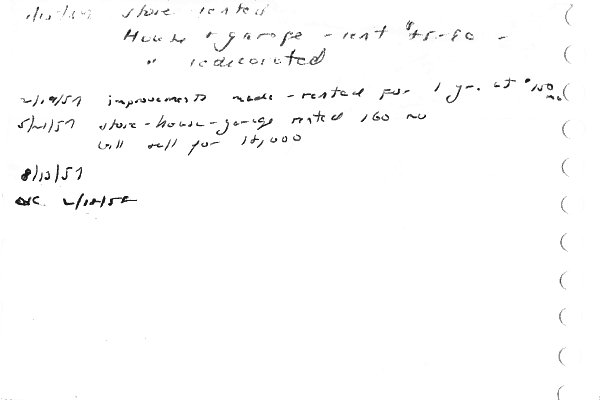 store rented
House + garage - rent -
" redecorated
2/19/57 improvements made - rented for 1 yr. at $150 mo
5/21/57 store-house-garage rented 160 mo
will sell for
8/12/57